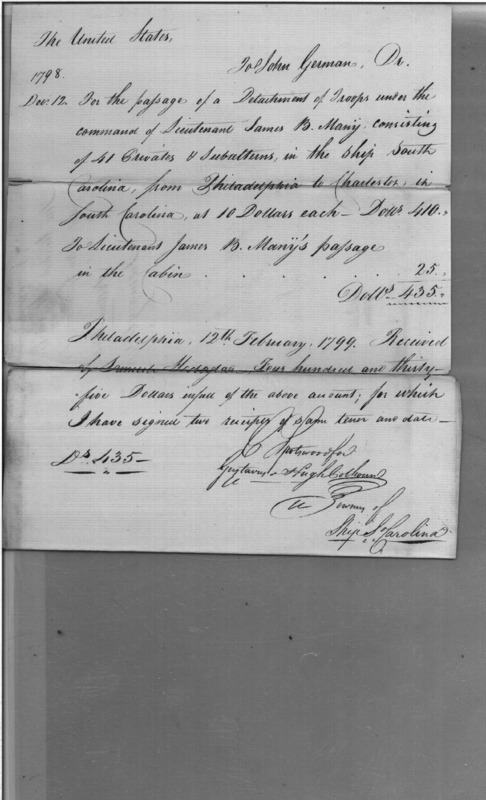 The United States,
To John German, Dr.
1798.
Dec: 12. For the passage of a Detachment of Troops under the
command of Lieutenant James B. Many, consisting
of 41 Privates & Subalterns, in the Ship South
Carolina, from Philadelphia to Charleston, in
South Carolina, at 10 Dollars each — Dolls 410.
To Lieutenant James B. Many's passage
in the Cabin . . . . . . . 25.
Dolls 435.
Philadelphia, 12th February, 1799. Received
of Samuel Hodgdon Four hundred and thirty-
five Dollars in full of the above account; for which
I have signed two receipts of same tenor and date —
Ds 435 —
Spotswood for
Gustavus & Hugh Colhoun
Owners of
Ship So Carolina